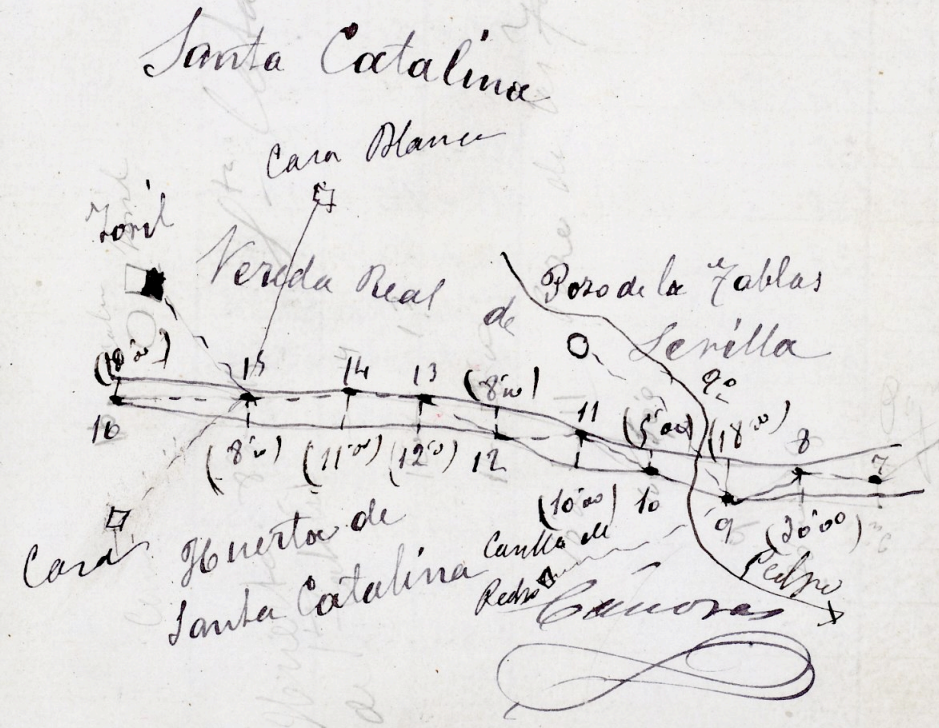 Santa Catalina
Casa Blanca
Toril
Vereda Real
de
Pozo de la Tablas
Sevilla
(10'00)
15
14
13
(8'00)
11
(5'00)
(18'00)
8
7
16
(8'00)
(11'00)
(12'0)
12
(10'00)
10
9
(20'00)
Casa
Huerta de
Santa Catalina
Casilla de
Pedro
Pedro
Cánovas